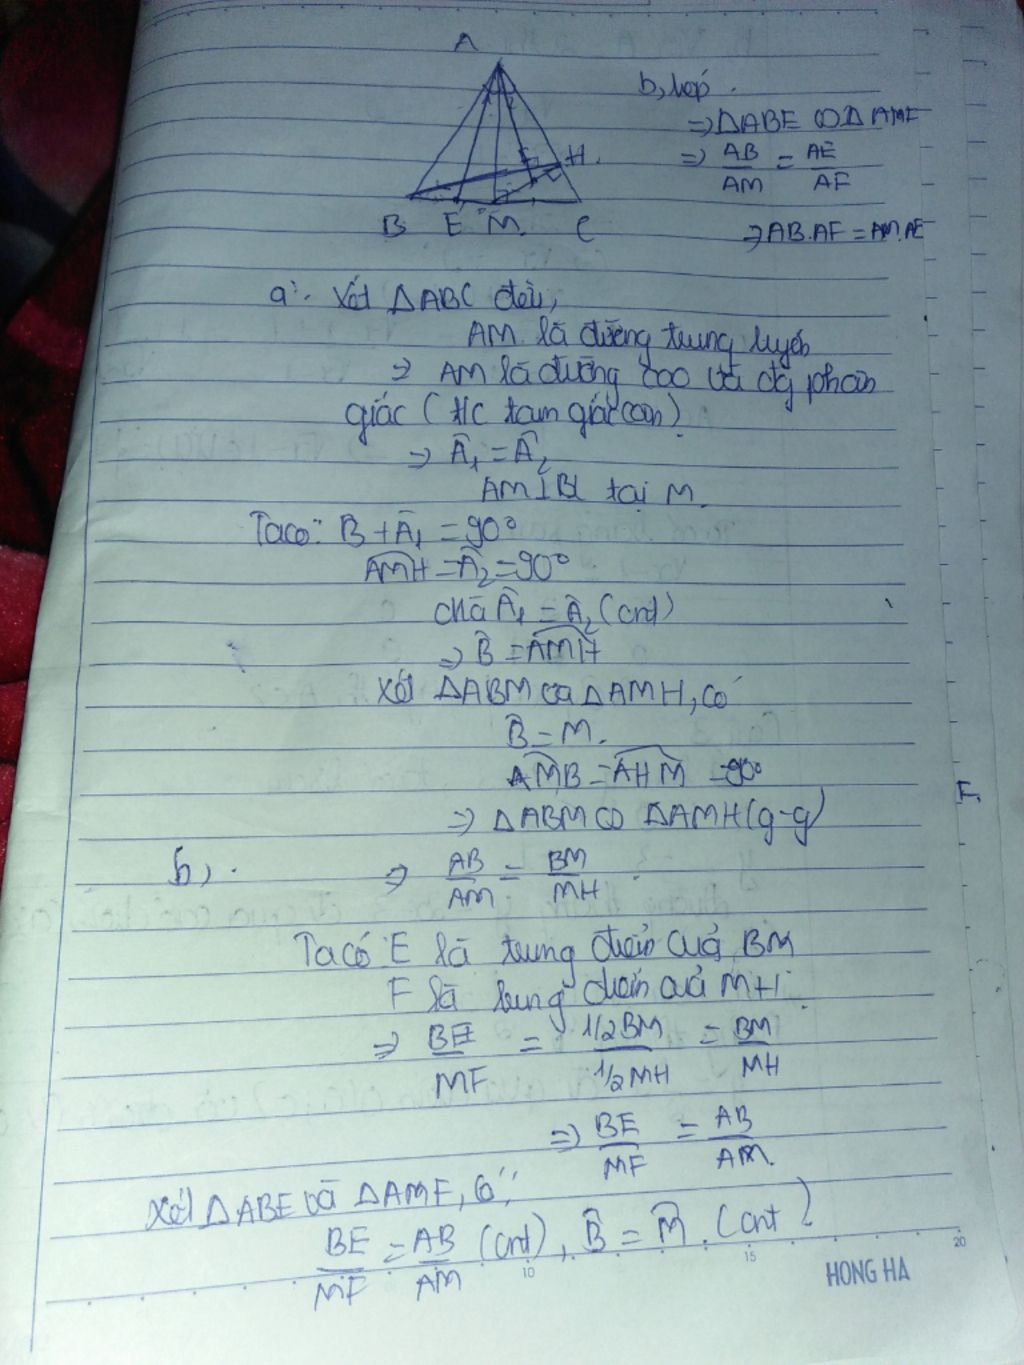 A
1 2
H
B E M C
b, tiếp
⇒ ΔABE ∽ Δ AMF
⇒ AB/AM = AE/AF
⇒ AB.AF = AM.AE
a, Xét ΔABC đều,
AM là đường trung tuyến
⇒ AM là đường cao và đg phân
giác (t/c tam giác cân)
⇒ Â₁ = Â₂
AM⊥BC tại M.
Ta có: B + Â₁ = 90°
AMH = Â₂ = 90°
mà Â₁ = Â₂ (cmt)
⇒ B̂ = AMH
Xét ΔABM và ΔAMH, có
B̂ = M.
AMB = AHM = 90°
⇒ ΔABM ∽ ΔAMH (g-g)
b, ⇒ AB/AM = BM/MH
Ta có E là trung điểm của BM
F là trung điểm của MH
⇒ BE/MF = 1/2BM / 1/2MH = BM/MH
⇒ BE/MF = AB/AM.
Xét ΔABE và ΔAMF, có
BE/MF = AB/AM (cmt), B̂ = M̂ (cmt)
10 15 20
HONG HA